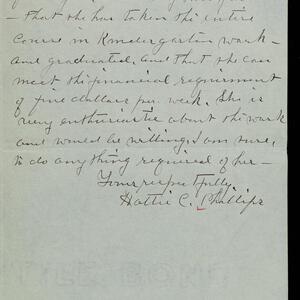 - that she has taken the entire
course in Kindergarten work -
and graduated, and that she can
meet the financial requirement
of five dollars per. week. She is
very enthusiastic about the work
and would be willing, I am sure,
to do anything required of her -
Yours respectfully
Hattie C. Phillips